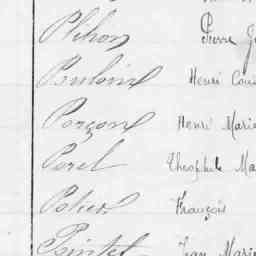 Plihon Pierre
Henri
Porçon Henri Marie
Porel Théophile Ma
Potier François
Pointel Jean Marie